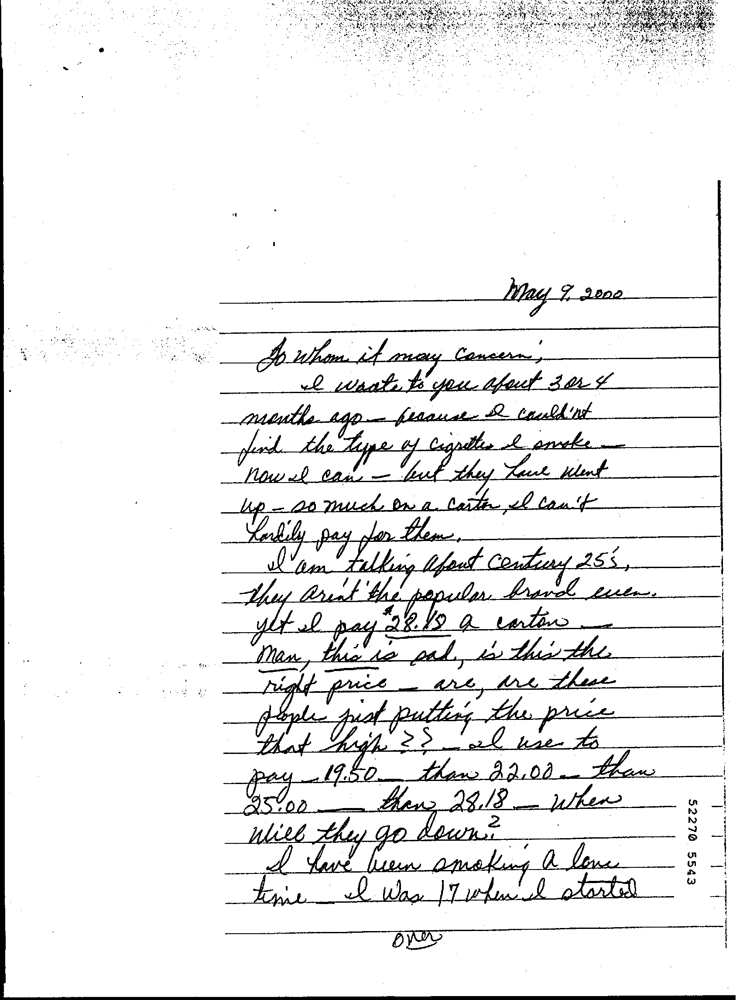 May 9, 2000
To Whom it may Concern,
I wrote to you about 3 or 4
months ago - because I could'nt
find the type of cigrettes I smoke -
now I can - but they have went
up - so much on a carton, I can't
hardily pay for them.
I am talking about Century 25's,
they arin't the popular brand even.
yet I pay $28.18 a carton -
Man, this is sad, is this the
right price - are, are these
people just putting the price
that high ?? - I use to
pay - 19.50 - than 22.00 - than
25.00 - than 28.18 - When
will they go down?
I have been smoking a long
time - I was 17 when I started
over
52270 5543